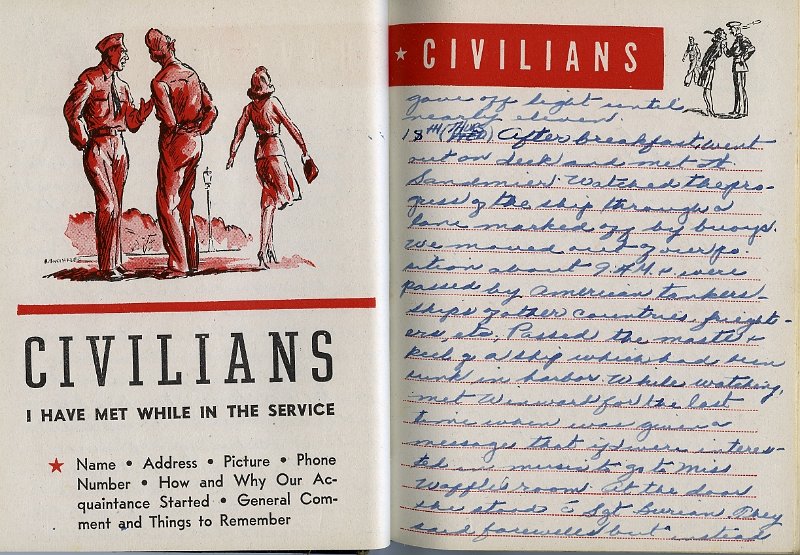 CIVILIANS
I HAVE MET WHILE IN THE SERVICE
★ Name • Address • Picture • Phone
Number • How and Why Our Ac-
quaintance Started • General Com-
ment and Things to Remember
★ CIVILIANS
gave off light until
nearly eleven.
18TH (Thurs) After breakfast, went
out on deck and met Lt
Sandmier. Watched the pro-
gress of the ship through a
lane marked off by buoys.
We moved out of our po-
sition about 9 AM & were
passed by American tankers -
ships of other countries, freight-
ers, etc. Passed the masts &
keel of a ship which had been
sunk in harbor. While watching,
met Winward for the last
time when was given a
message that if were interes-
ted in music to go to Miss
Waffle's room. At the door
she stands c̄ Sgt Burian. They
said farewells but instead